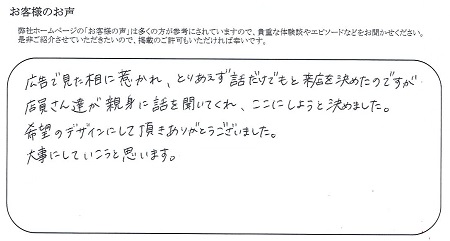 お客様のお声
弊社ホームページの「お客様の声」は多くの方が参考にされていますので、貴重な体験談やエピソードなどをお聞かせください。
是非ご紹介させていただきたいので、掲載のご許可もいただければ幸いです。
広告で見た相に惹かれ、とりあえず話だけでもと来店を決めたのですが
店員さん達が親身に話を聞いてくれ、ここにしようと決めました。
希望のデザインにして頂きありがとうございました。
大事にしていこうと思います。